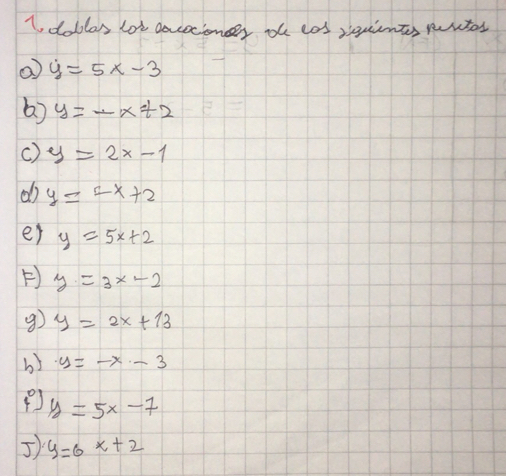 1. dablas los ecuaciones de los siguientes puntos
a) y = 5x - 3
b) y = -x + 2
c) y = 2x - 1
d) y = -x + 2
e) y = 5x + 2
F) y = 3x - 2
g) y = 2x + 13
h) y = -x - 3
i) y = 5x - 7
J) y = 6x + 2